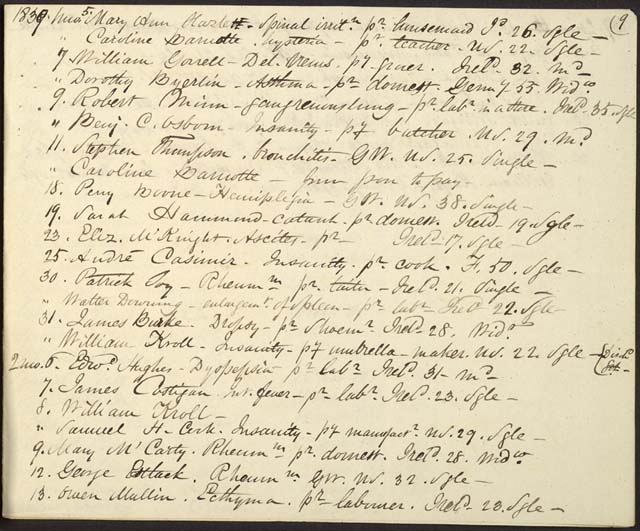 9
1839. 1mo. 5. Mary Ann Hazlett. Spinal irritn pr housemaid Id. 26. Sgle —
" Caroline Barnotte. hysteria — pr teacher. US. 22. Sgle —
7 William Gorell — Del. Tremens. py Irela. 32. Md —
" Dorothy Byerlin — Asthma — pr domest. Germy 55. Widw
9. Robert Minn — gangrenous lung — pr labr Ireld. 35. Sgle
" Benj. C. Osborn — Insanity — py butcher. US. 29. Md.
11. Stephen Thompson. bronchitis — GW. US. 25. Single —
" Caroline Barnotte — from poor to pay —
18. Perry Boone — Hemiplegia — GW. US. 38. Single —
19. Sarah Hammond — catarrh. pr domest. Ireld — 19. Sgle —
23. Eliz. McKnight. Ascites — pr — Ireld. 17. Sgle —
25. André Casimir. Insanity. pr cook. F. 50. Sgle —
30. Patrick Joy — Rheumm pr tailor — Ireld. 21. Single —
" Walter Downing — enlargemt. of Spleen — pr labr Ireld 22. Sgle
31. James Burke. Dropsy — pr Shoemr Ireld. 28. Widr
" William Kroll — Insanity — py umbrella-maker. US. 22. Sgle —
2mo. 6. Edwd. Hughes — Dyspepsia pr labr Ireld. 31 — Md —
7. James Costigan Int. fever — pr labr. Ireld. 23. Sgle —
8. William Kroll —
" Samuel H. Cork. Insanity — py manufactr. US. 29. Sgle —
9. Mary McCarty. Rheumm pr domest. Ireld. 28. Widw.
12. George Estlack. Rheumm GW. US. 32. Sgle —
13. Owen Mullin. Ecthyma. pr — labourer. Ireld. 23. Sgle —